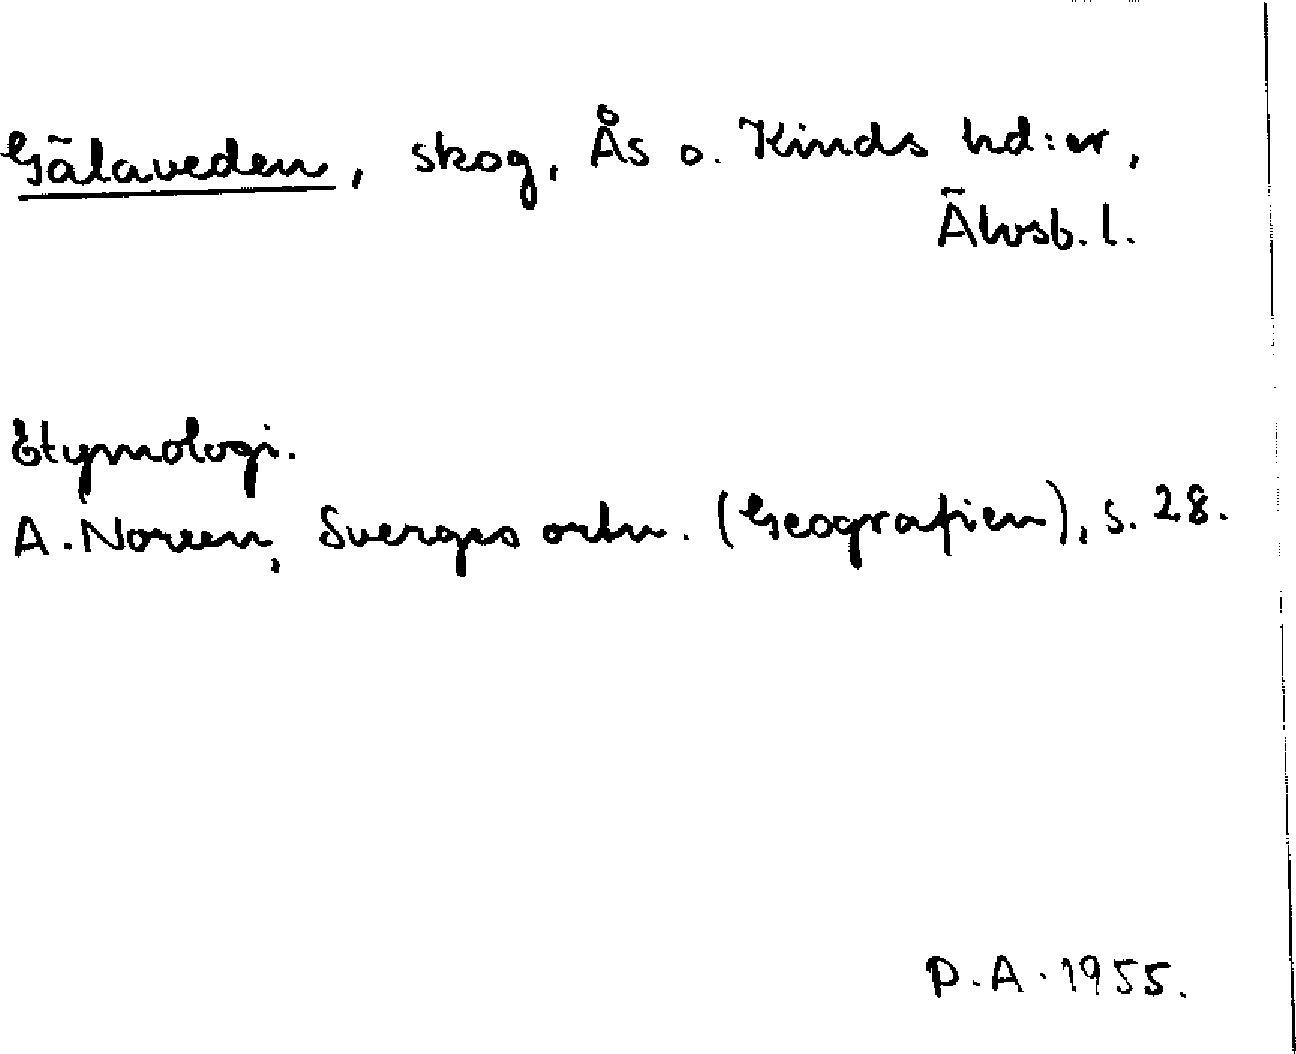 Gälaveden, skog, Ås o. Kinds hd:er,
Älvsb. l.
Etymologi.
A. Noreen, Sverges ortn. (Geografien), s. 28.
P.A. 1955.